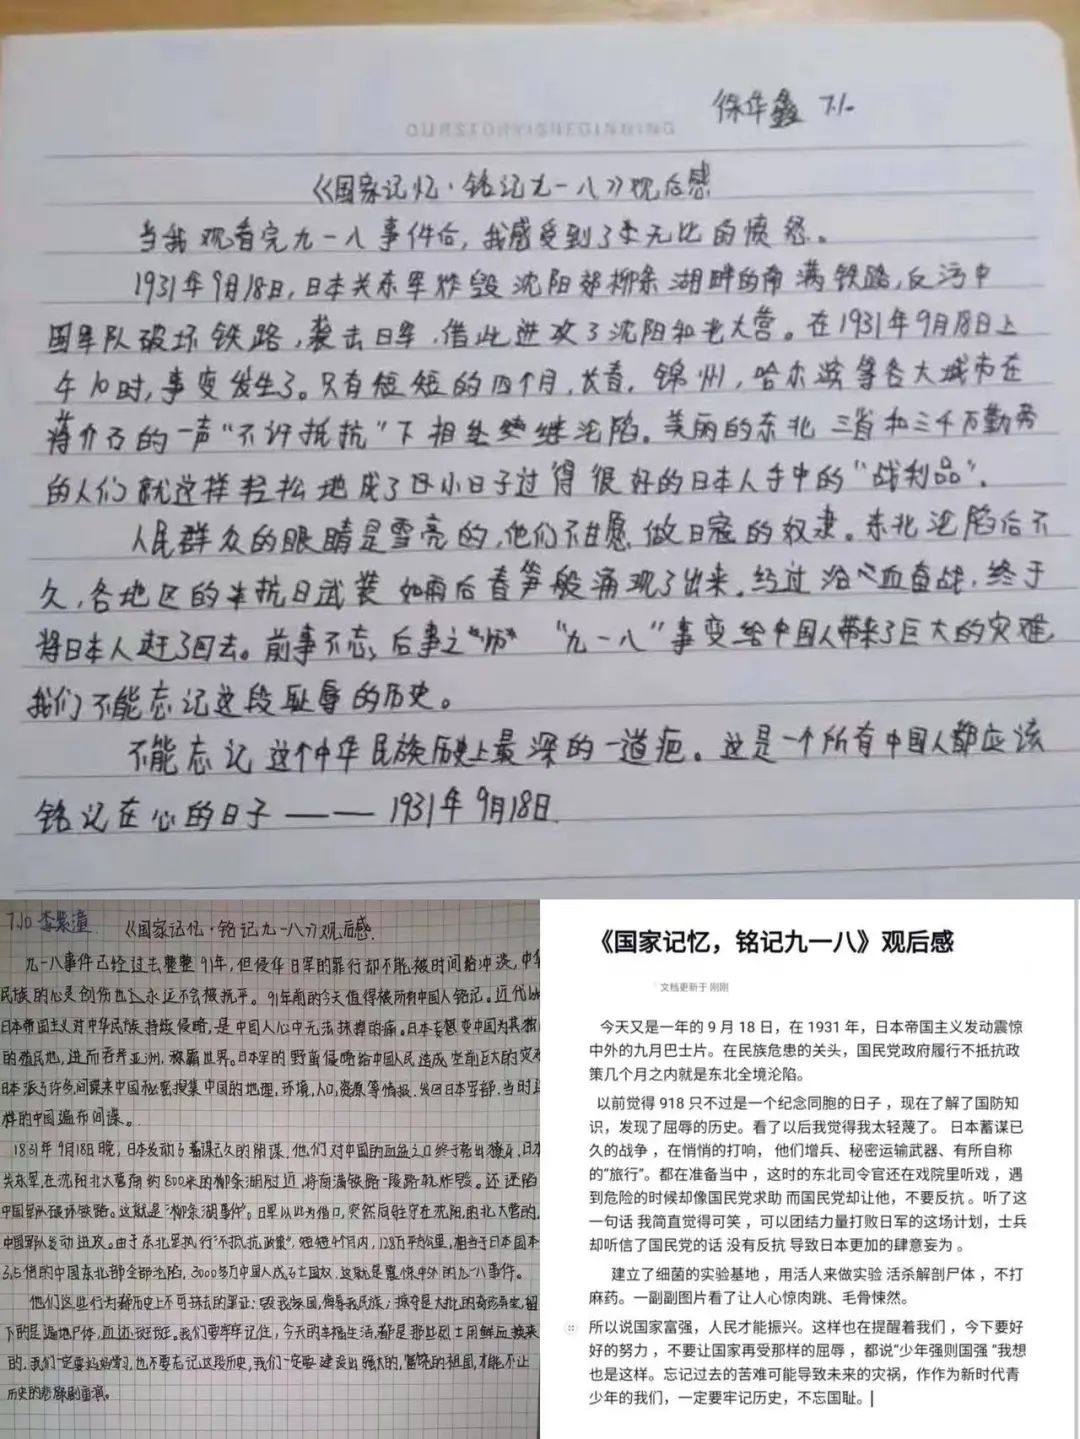 徐华鑫 7.1.
《国家记忆·铭记九一八》观后感
当我观看完九一八事件后，我感受到了无比的愤怒。
1931年9月18日，日本关东军炸毁沈阳郊柳条湖畔的南满铁路，反污中
国军队破坏铁路，袭击日军，借此进攻了沈阳和北大营。在1931年9月18日上
午10时，事变发生了。只有短短的四个月，长春，锦州，哈尔滨等各大城市在
蒋介石的一声“不许抵抗”下相继沦陷。美丽的东北三省和三千万勤劳
的人们就这样轻松地成了小日子过得很好的日本人手中的“战利品”。
人民群众的眼睛是雪亮的，他们不甘愿做日寇的奴隶。东北沦陷后不
久，各地区的抗日武装如雨后春笋般涌现了出来。经过浴血奋战，终于
将日本人赶了回去。前事不忘，后事之“师”“九一八”事变给中国人带来了巨大的灾难，
我们不能忘记这段耻辱的历史。
不能忘记这个中华民族历史上最深的一道疤。这是一个所有中国人都应该
铭记在心的日子——1931年9月18日.
7.10 李紫潼 《国家记忆·铭记九一八》观后感.
九一八事件已经过去整整91年，但侵华日军的罪行却不能被时间给冲淡，中华
民族的心灵创伤也永远不会被抚平。91年前的今天值得被所有中国人铭记。近代
日本帝国主义对中华民族持续侵略，是中国人心中无法抹掉的痛。日本妄想变中国为其独
的殖民地，进而吞并亚洲，称霸世界。日本军的野蛮侵略给中国人民造成空前巨大的灾
日本派了许多间谍来中国秘密搜集中国的地理，环境，人口，资源等情报，发回日本军部，当时
样的中国遍布间谍。
1831年9月18日晚，日本发动了蓄谋已久的阴谋，他们对中国的血盆之口终于露出獠牙，日本
关东军，在沈阳北大营南约800米的柳条湖附近，将南满铁路一段路轨炸毁。还诬陷
中国军队破坏铁路。这就是“柳条湖事件”。日军以此为借口，突然向驻守在沈阳的北大营的
中国军队发动进攻。由于东北军执行“不抵抗政策”，短短4个月内，128万平方公里，相当于日本国本
3.5倍的中国东北部全部沦陷，3000多万中国人成了亡国奴，这就是震惊中外的九一八事件。
他们这些行为都历史上不可抹去的罪证；毁我家园，侮辱我民族；掠夺是大批的奇珍异宝，留
下的是遍地尸体，血迹斑斑。我们要牢牢记住，今天的幸福生活都是那些烈士用鲜血换来
的，我们一定要好好学习，也不要忘记这段历史，我们一定要建设出强大的，富饶的祖国，才能不让
历史的悲剧重演。
《国家记忆，铭记九一八》观后感
文档更新于 刚刚
今天又是一年的 9 月 18 日，在 1931 年，日本帝国主义发动震惊
中外的九月巴士片。在民族危患的关头，国民党政府履行不抵抗政
策几个月之内就是东北全境沦陷。
以前觉得 918 只不过是一个纪念同胞的日子 ，现在了解了国防知
识，发现了屈辱的历史。看了以后我觉得我太轻蔑了。 日本蓄谋已
久的战争 ，在悄悄的打响， 他们增兵、秘密运输武器、有所自称
的“旅行”。都在准备当中 ，这时的东北司令官还在戏院里听戏 ，遇
到危险的时候却像国民党求助 而国民党却让他，不要反抗 。听了这
一句话 我简直觉得可笑 ，可以团结力量打败日军的这场计划，士兵
却听信了国民党的话 没有反抗 导致日本更加的肆意妄为 。
建立了细菌的实验基地 ，用活人来做实验 活杀解剖尸体 ，不打
麻药。一副副图片看了让人心惊肉跳、毛骨悚然。
所以说国家富强，人民才能振兴。这样也在提醒着我们 ，今下要好
好的努力 ，不要让国家再受那样的屈辱 ，都说“少年强则国强 ”我想
也是这样。忘记过去的苦难可能导致未来的灾祸，作作为新时代青
少年的我们，一定要牢记历史，不忘国耻。